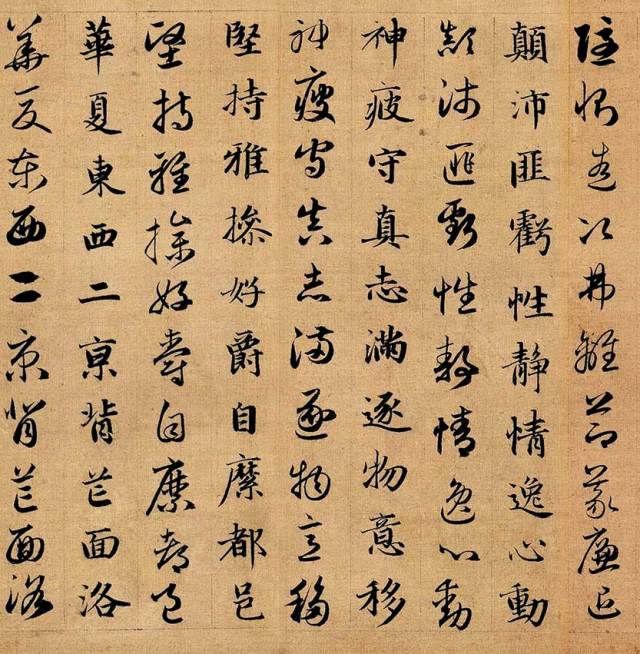 隱惻造次弗離節義廉退
顛沛匪虧性靜情逸心動
顛沛匪虧性靜情逸心動
神疲守真志滿逐物意移
神疲守真志滿逐物意移
堅持雅操好爵自縻都邑
堅持雅操好爵自縻都邑
華夏東西二京背芒面洛
華夏東西二京背芒面洛